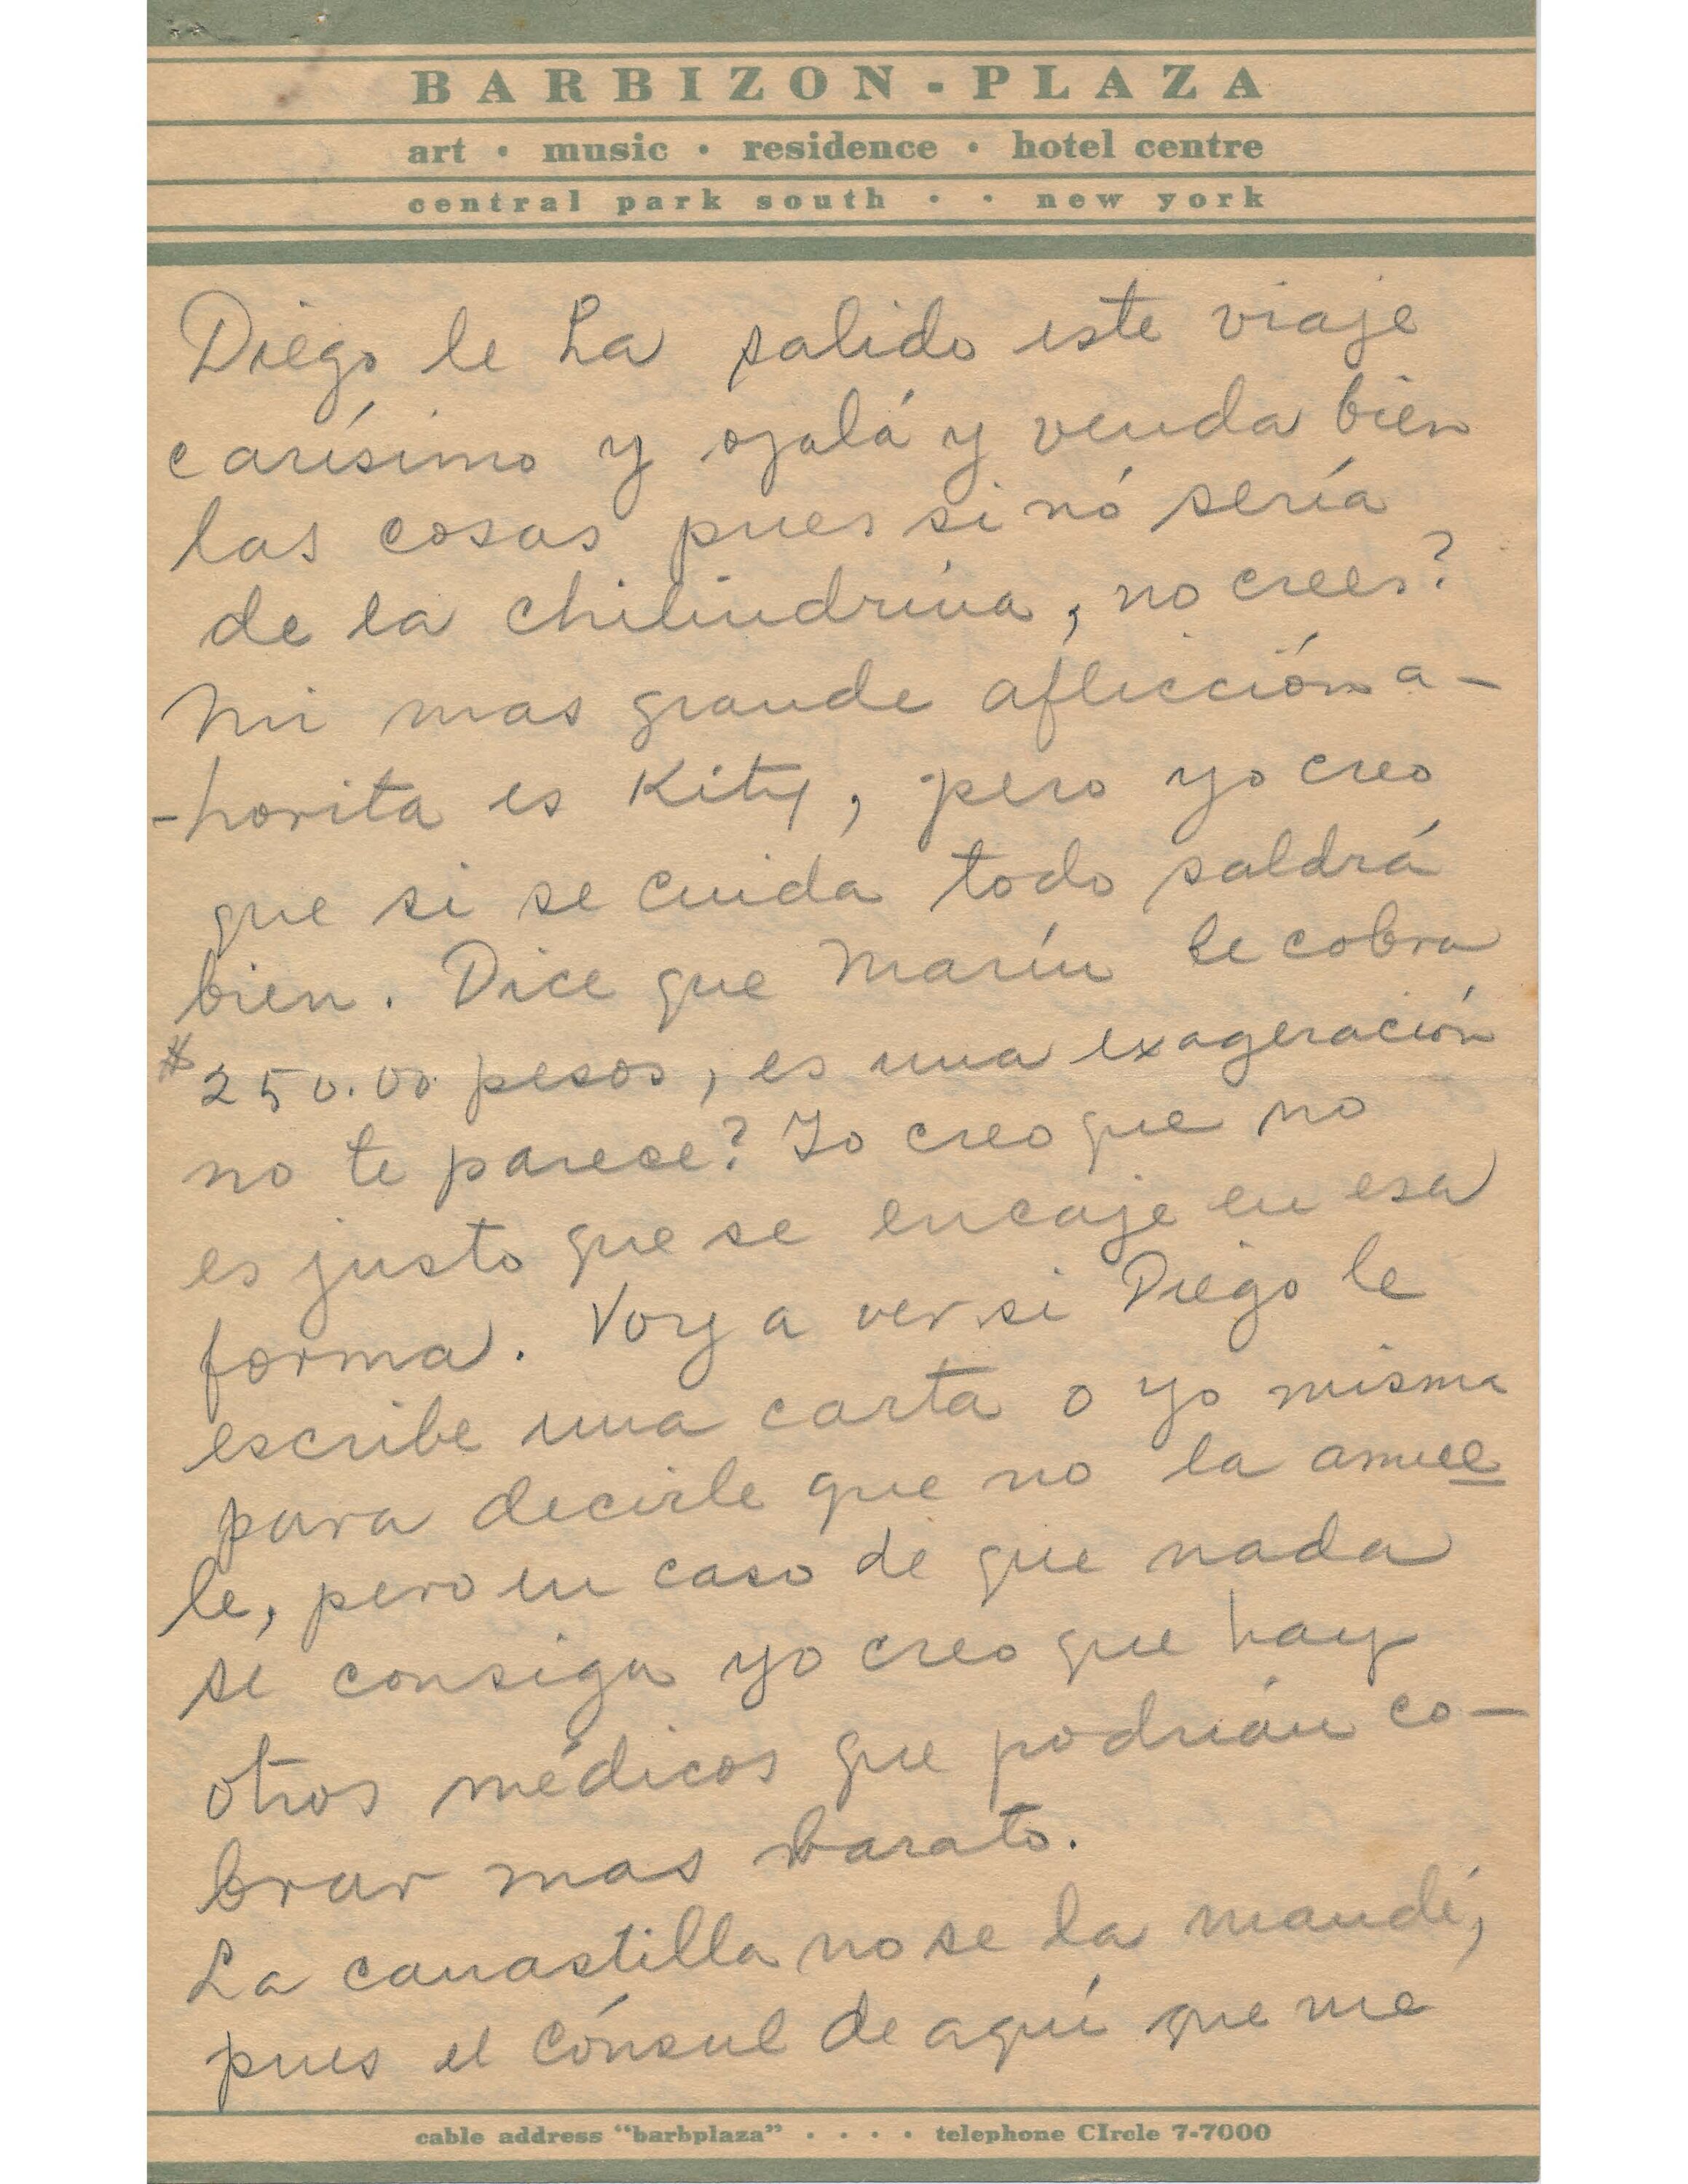 BARBIZON-PLAZA
art • music • residence • hotel centre
central park south • • new york
Diego le ha salido este viaje
carísimo y ojalá y venda bien
las cosas pues si nó sería
de la chilindrina, no crees?
Mi mas grande aflicción a-
-horita es Kity, pero yo creo
que si se cuida todo saldrá
bien. Dice que Marín le cobra
$250.00 pesos, es una exageración
no te parece? Yo creo que no
es justo que se encaje en esa
forma. Voy a ver si Diego le
escribe una carta o yo misma
para decirle que no la amue
le, pero en caso de que nada
se consiga yo creo que hay
otros médicos que podrián co-
brar mas barato.
La canastilla no se la mandé,
pues el cónsul de aquí que me
cable address "barbplaza" • • • • telephone CIrcle 7-7000